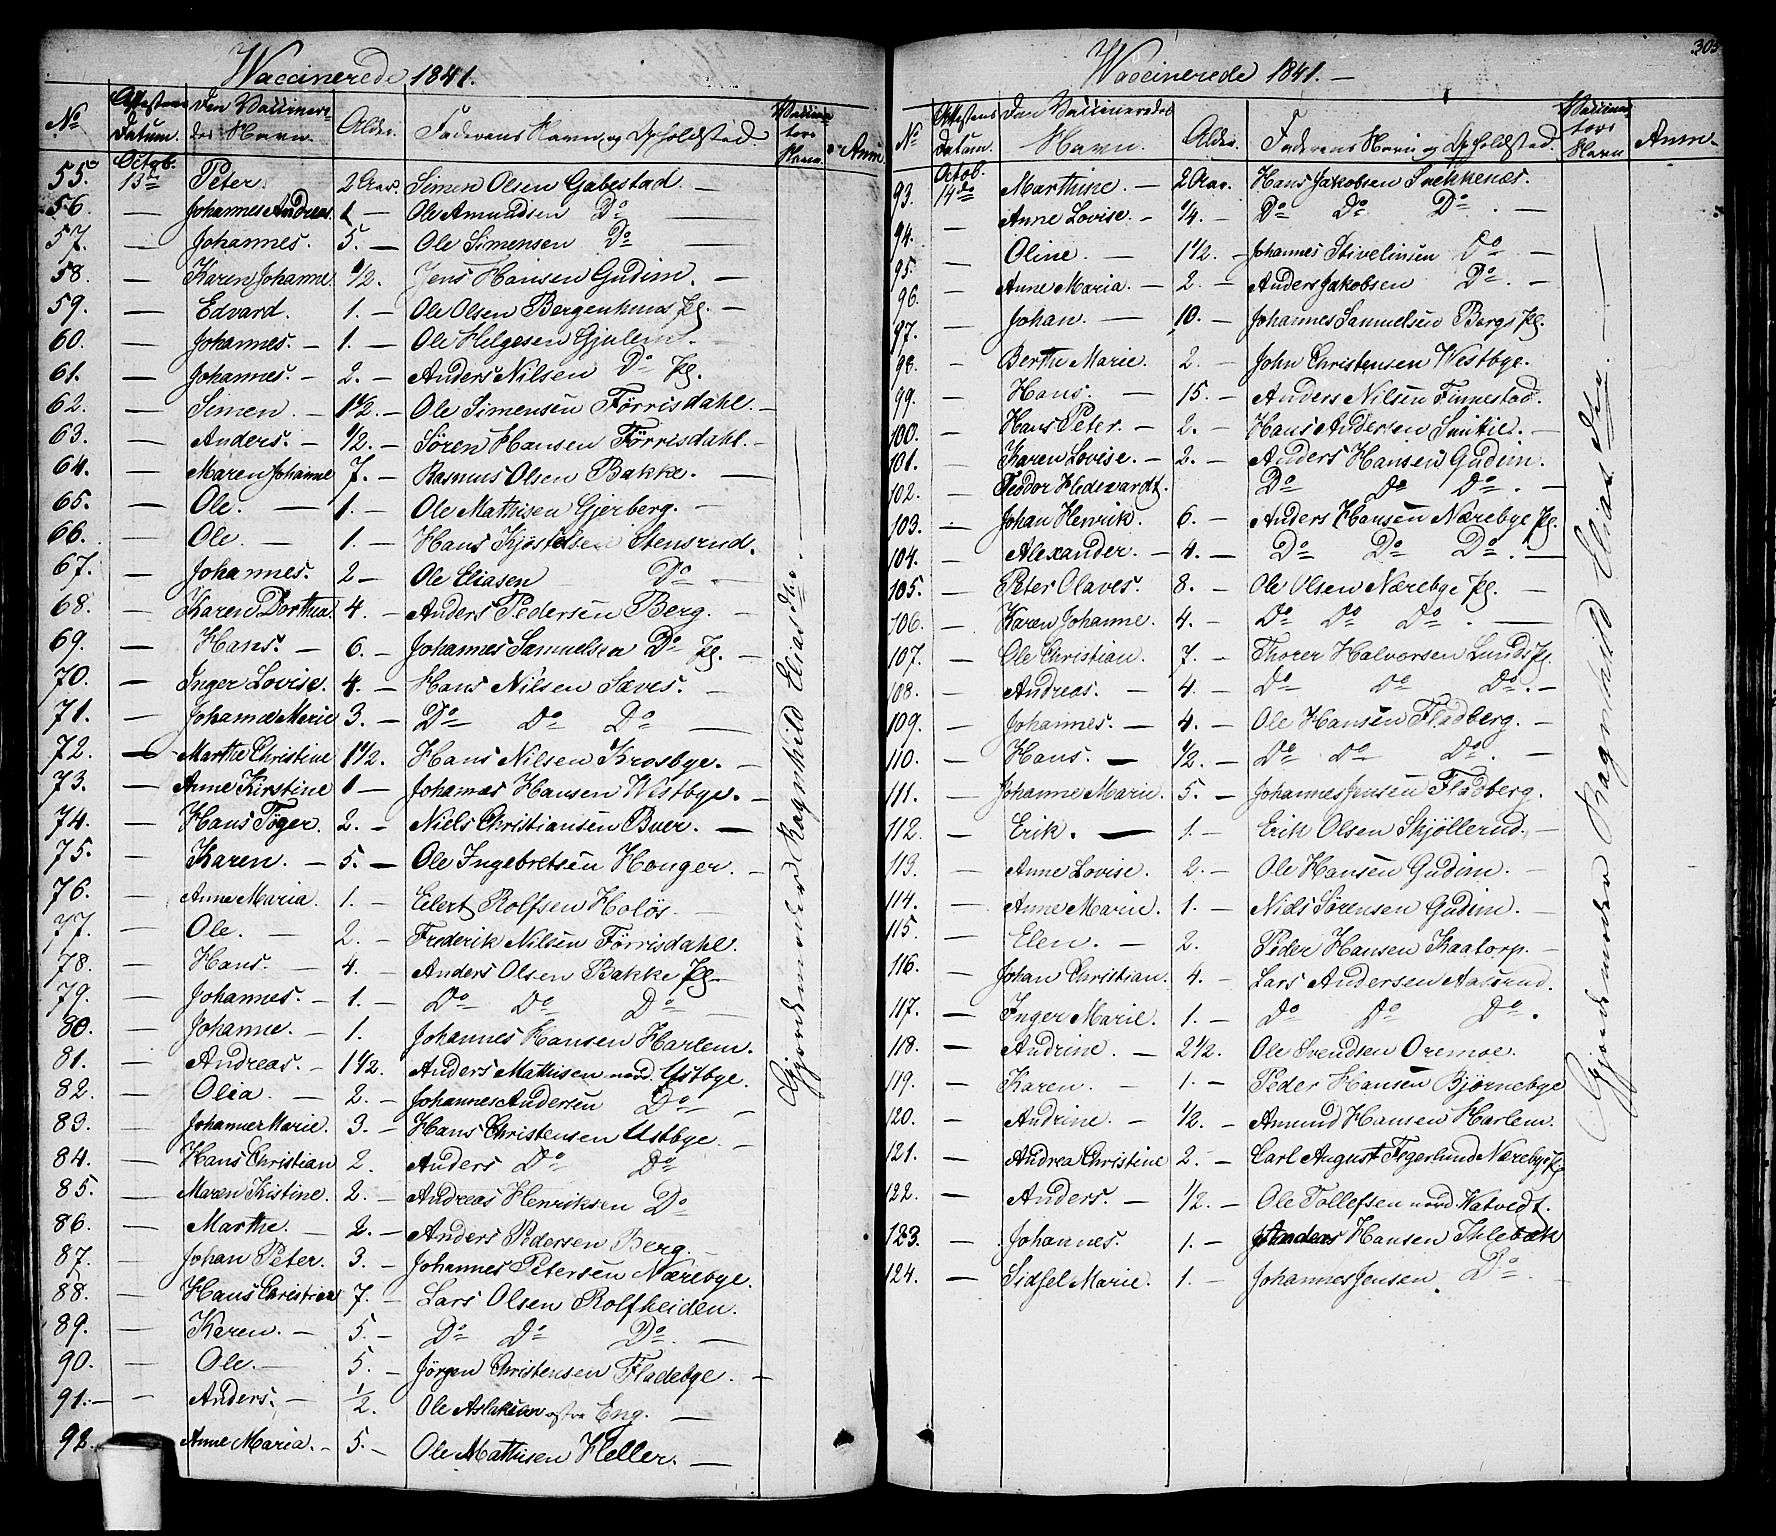 Vaccinerede 1841.
No Attestens Datum. Den Vaccineredes Navn. Alder. Faderens Navn og Opholdsted. Vaccinators Navn Anm.
55. Octob. 13de Peter. 2 Aar. Simen Olsen Gabestad —
56. — Johannes Andreas. 1 — Ole Amundsen Do —
57. — Johannes. 5. — Ole Simensen Do —
58. — Karen Johanne 1/2. Jens Hansen Gudim. —
59. — Edvard. 1. — Ole Olsen Bergenhuus Pl. —
60. — Johannes. — 1. — Ole Helgesen Gjulem. —
61. — Johannes. — 2. — Anders Nilsen Do Pl.
62. — Simen. — 1 1/2. — Ole Simensen Förrisdahl. —
63. — Anders. — 1/2. — Sören Hansen Förrisdahl. —
64. — Maren Johanne 7. — Rasmus Olsen Bakke. —
65. — Ole. — 1. — Ole Mathisen Gjerberg. —
66. — Ole. — 1. — Hans Kjostelsen Stensrud.
67. — Johannes. 2 — Ole Eliasen Do —
68. — Karen Dorthea. 4. — Anders Pedersen Berg. —
69. — Hans. — 6. — Johannes Samuelsen Do Pl. —
70. — Inger Lovise. 4. — Hans Nilsen Sæves. —
71. — Johanne Marie 3. — Do Do Do —
72. — Marthe Christine 1 1/2. Hans Nilsen Krosbye. —
73. — Anne Kirstine 1 — Johannes Hansen Westbye. —
74. — Hans Töger. 2. — Niels Christiansen Buer. —
75. — Karen. — 5. — Ole Ingebretsen Honger. —
76. — Anne Maria. 1. — Eilert Rolfsen Holös. —
77. — Ole. — 2. — Frederik Nilsen Förrisdahl.
78. — Hans. — 4. Anders Olsen Bakke Pl. —
79. — Johannes. — 1. — Do Do Do —
80. — Johanne. — 1. Johannes Hansen Harlem.
81. — Andreas. — 1 1/2. Anders Mathisen nord. Ustbye.
82. — Olea. — 2. — Johannes Andersen Do —
83. — Johanne Marie. 3. — Hans Christensen Ustbye. —
84. — Hans Christian 2. Anders Do Do
85. — Maren Kistine. 2. — Andreas Henriksen Do
86. — Marthe. 2. — Anders Pedersen Berg. —
87. — Johan Peter. 3. — Johannes Petersen Nærebye.
88. — Hans Christian 7. — Lars Olsen Rolfheiden.
89. — Karen. — 5. — Do Do Do —
90. — Ole. — 5. — Jörgen Christensen Fladebye. —
91. — Anders. — 1/2. Ole Aslaksen østre Eng. —
92. — Anne Maria. — 5. — Ole Mathisen Heller. —
Gjordemoder Ragnhild Elias Dtr. —
305
Vaccinerede 1841. —
No Attestens Datum. Den Vaccineredes Navn. Alder. Faderens Navn og Opholdsted. Vaccinators Navn Anm.
93. Octob. 14de Marthine. — 2 Aar. Hans Jakobsen Snekkenæs.
94. — Anne Lovise. — 1/4. — Do Do Do. —
95. — Oline. — 1 1/2. — Johannes Do —
96. — Anne Maria. — 2. — Anders Jakobsen Do. —
97. — Johan. — 10. — Johannes Samuelsen Bergs Pl.
98. — Berthe Marie. 2. — John Christensen Westbye.
99. — Hans. — 15. — Anders Nilsen Finnestad.
100. — Hans Peter. — 2. — Hans Andersen —
101. — Karen Lovise. — 2. — Anders Hansen Gudim.
102. — Teodor Do Do Do. —
103. — Johan Henrik. 6. — Anders Hansen Nærebye Pl.
104. — Alexander. — 4. — Do Do Do. —
105. — Peter Olaves. 8. — Ole Olsen Nærebye Pl. —
106. — Karen Johanne. 4. — Do Do Do. —
107. — Ole Christian. 7. — Thorer Halvorsen Lunds Pl.
108. — Andreas. — 4. — Do Do Do. —
109. — Johannes. — 4. — Ole Hansen Fladberg. —
110. — Hans. — 1/2. — Do Do Do. —
111. — Johanne Marie. 5. — Johannes Jensen Fladberg.
112. — Erik. — 1. — Erik Olsen Skjöllerud. —
113. — Anne Lovise. 2. — Ole Hansen Gudim. —
114. — Anne Marie. 1. — Niels Sörensen Gudim. —
115. — Elen. — 2. Peder Hansen Kaatorp. —
116. — Johan Christian. 4. — Lars Andersen Aaserud.
117. — Inger Marie. 1. — Do Do Do.
118. — Andrine. — 2 1/2. Ole Svendsen Oremoe.
119. — Karen. — 1. — Peder Hansen Björnebye
120. — Andrine. — 1/2. — Amund Hansen Harlem.
121. — Andrea Christine 2. — Carl August Fegerlund Nærebye Pl
122. — Anders. — 1/2. — Ole Tollefsen nord Hatvedt.
123. — Johannes. 1. — Anders Hansen Ihlebæk
124. — Sidsel Marie. 1. — Johannes Jensen. Do. —
Gjordemoder Ragnhild Elias Dtr. —